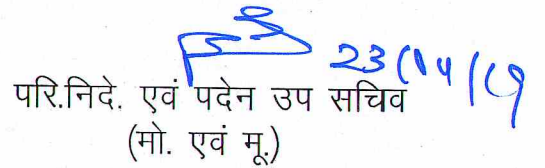 23/04/19
परि.निदे. एवं पदेन उप सचिव
(मो. एवं मू.)